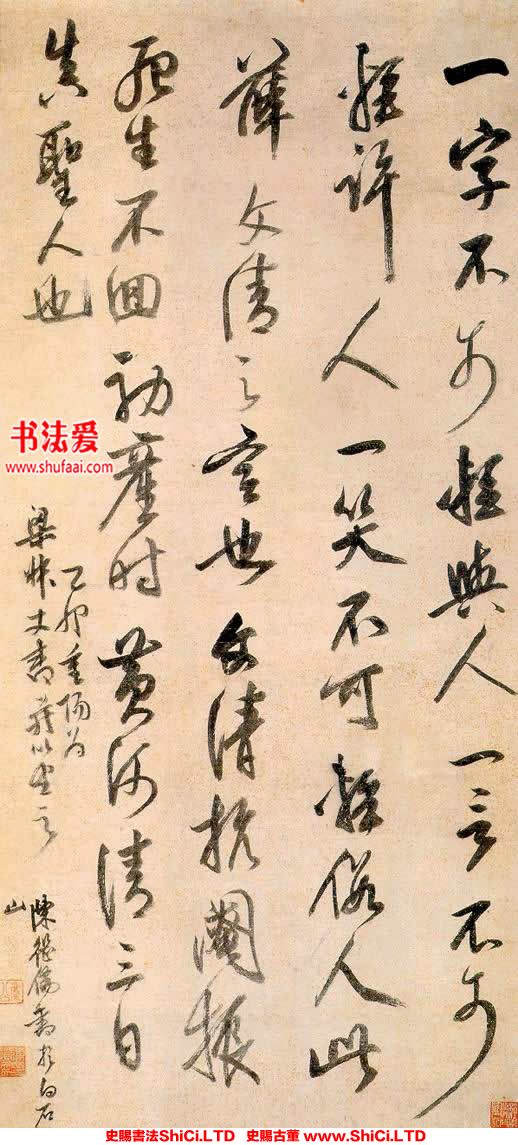 一字不可輕與人一言不可
輕許人一笑不可輕假人此
薛文清之言也文清抗閹振
死生不回初產時黃河清三日
真聖人也
乙卯重陽為
梁
書
陳
書於白石
山
书法爱
www.shufaai.com
史賜書法ShiCi.LTD 史賜古董 www.ShiCi.LTD